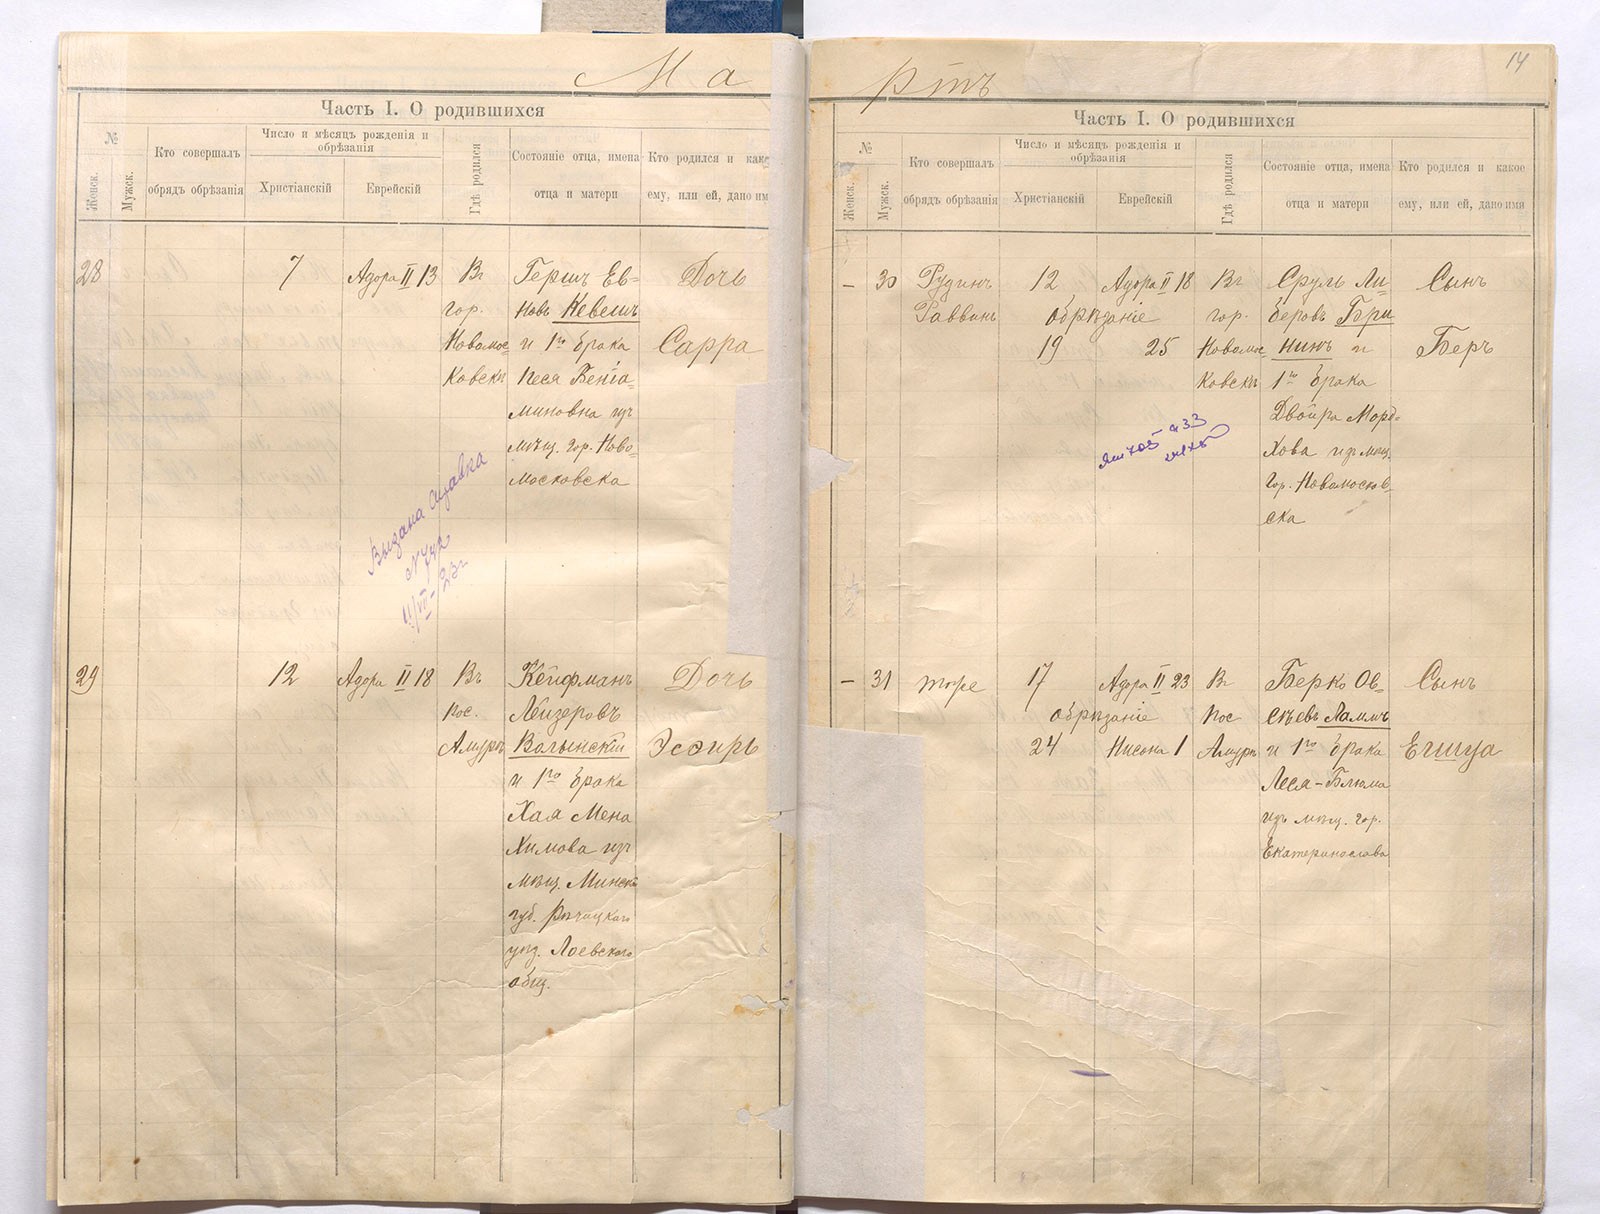 Ма
Часть I. О родившихся
№
Женск.
Мужск.
Кто совершалъ
обрядъ обрѣзанія
Число и мѣсяцъ рожденія и
обрѣзанія
Христіанскій
Еврейскій
Гдѣ родился
Состояніе отца, имена
отца и матери
Кто родился и како
ему, или ей, дано им
28
7
Адора II 13
Въ
гор.
Новомос=
ковскѣ
Гершъ Ев=
новъ Кевешъ
и 1го брака
Песя Веніа=
миновна изъ
мѣщ. гор. Ново=
московска
Дочь
Сарра
Выдана справка
N 742
11/VII-23г
29
12
Адора II 18
Въ
пос.
Амурѣ
Кейфманъ
Лейзеровъ
Волынскій
и 1го брака
Хая Мена
Химова изъ
мѣщ. Минск
губ. Рѣчицкаго
уѣз. Лоевскаго
общ.
Дочь
Эсѳирь
14
ртъ
Часть I. О родившихся
№
Женск.
Мужск.
Кто совершалъ
обрядъ обрѣзанія
Число и мѣсяцъ рожденія и
обрѣзанія
Христіанскій
Еврейскій
Гдѣ родился
Состояніе отца, имена
отца и матери
Кто родился и какое
ему, или ей, дано имя
– 30
Рудинъ
Раввинъ
12
Адора II 18
обрѣзаніе
19
25
Въ
гор.
Новомос=
ковскѣ
Сруль Ли=
беровъ Бри
нинъ и
1го брака
Двойра Морд=
хова изъ мѣщ.
гор. Новомосков=
ска
Сынъ
Беръ
– 31
тоже
17
Адора II 23
обрѣзаніе
24
Нисона 1
Въ
пос
Амурѣ
Берко Ов=
сѣевъ Ламмъ
и 1го брака
Леся-Блюма
изъ мѣщ. гор.
Екатеринослава
Сынъ
Егишуа